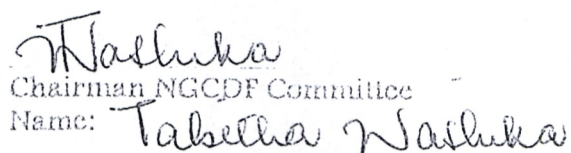 Washuka
Chairman NGCDF Committee
Name: Tabitha Washuka